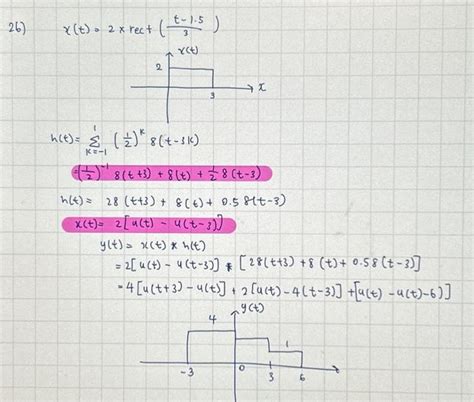 26) x(t) = 2 x rect ( t-1.5 / 3 )
x(t)
2
3
x
h(t) = Σ k=-1 1 (1/2)^k δ(t-3k)
= (1/2)^-1 δ(t+3) + δ(t) + 1/2 δ(t-3)
h(t) = 2δ(t+3) + δ(t) + 0.5δ(t-3)
x(t) = 2[u(t) - u(t-3)]
y(t) = x(t) * h(t)
= 2[u(t) - u(t-3)] * [2δ(t+3) + δ(t) + 0.5δ(t-3)]
= 4[u(t+3) - u(t)] + 2[u(t) - u(t-3)] + [u(t) - u(t)-6)]
y(t)
4
1
-3
0
3
6
t